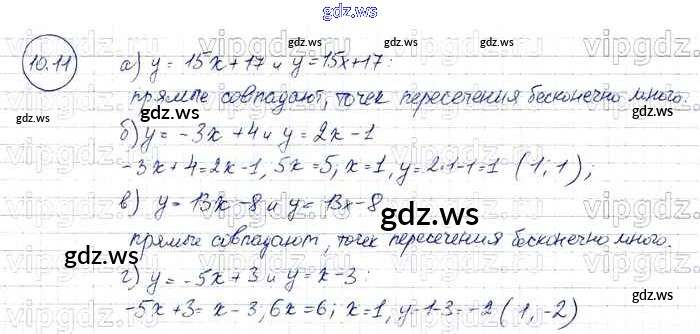 gdz.ws
10.11 а) y = 15x+17 и y = 15x+17:
прямые совпадают, точек пересечения бесконечно много.
б) y = -3x +4 и y = 2x -1
-3x+4=2x-1, 5x=5, x=1, y=2·1-1=1 (1; 1);
в) y = 13x -8 и y = 13x-8
прямые совпадают, точек пересечения бесконечно много.
г) y = -5x+3 и y = x-3:
-5x+3= x-3; 6x=6; x=1, y=1-3=-2 (1, -2)
gdz.ws
gdz.ws
gdz.ws
gdz.ws
gdz.ws
gdz.ws